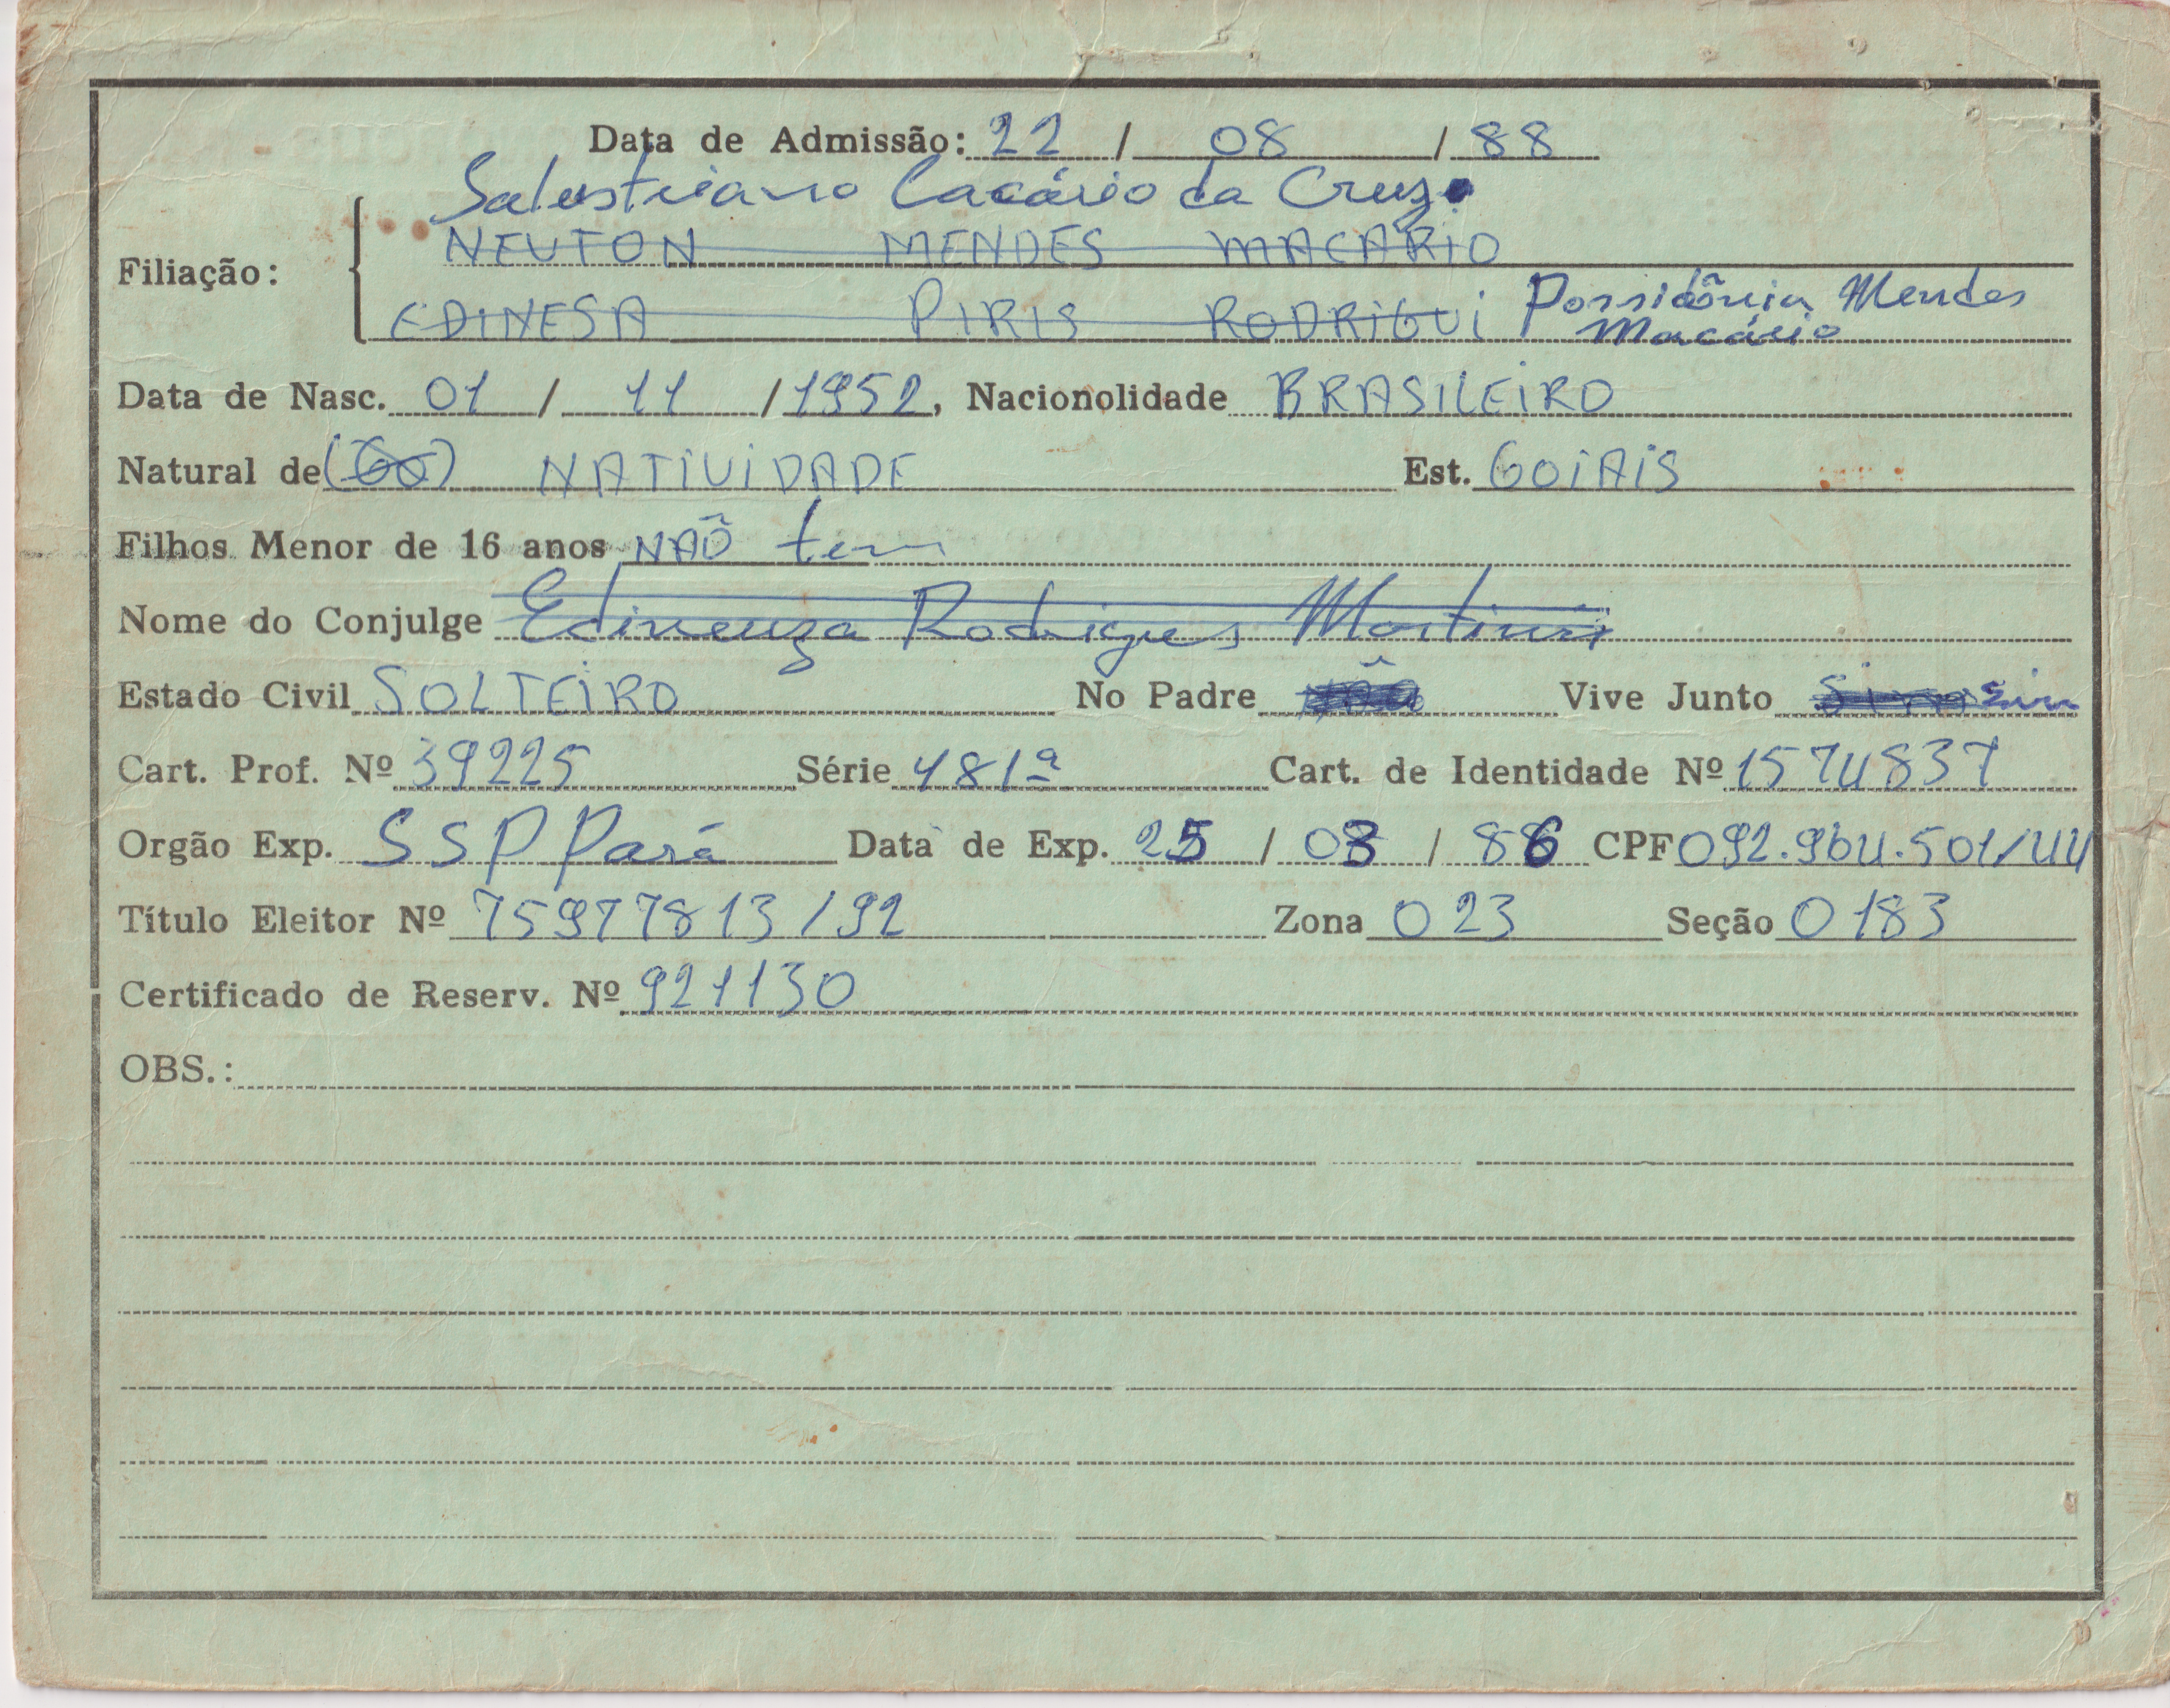 Data de Admissão: 22 / 08 / 88
Salustriano Cacário da Cruz
NEUTON MENDES MACARIO
Filiação:
EDINESA PIRIS RODRIGUI Possidônia Mendes
Macário
Data de Nasc. 01 / 11 / 1952, Nacionolidade BRASILEIRO
Natural de (GO) NATIVIDADE Est. GOIAIS
Filhos Menor de 16 anos NÃO tem
Nome do Conjulge Edineuza Rodrigues Martins
Estado Civil SOLTEIRO No Padre NÃO Vive Junto Sim sim
Cart. Prof. Nº 39225 Série 481ª Cart. de Identidade Nº 1574837
Orgão Exp. SSP Pará Data de Exp. 25 / 03 / 86 CPF 092.964.501/44
Título Eleitor Nº 75977813/92 Zona 023 Seção 0183
Certificado de Reserv. Nº 921130
OBS.: